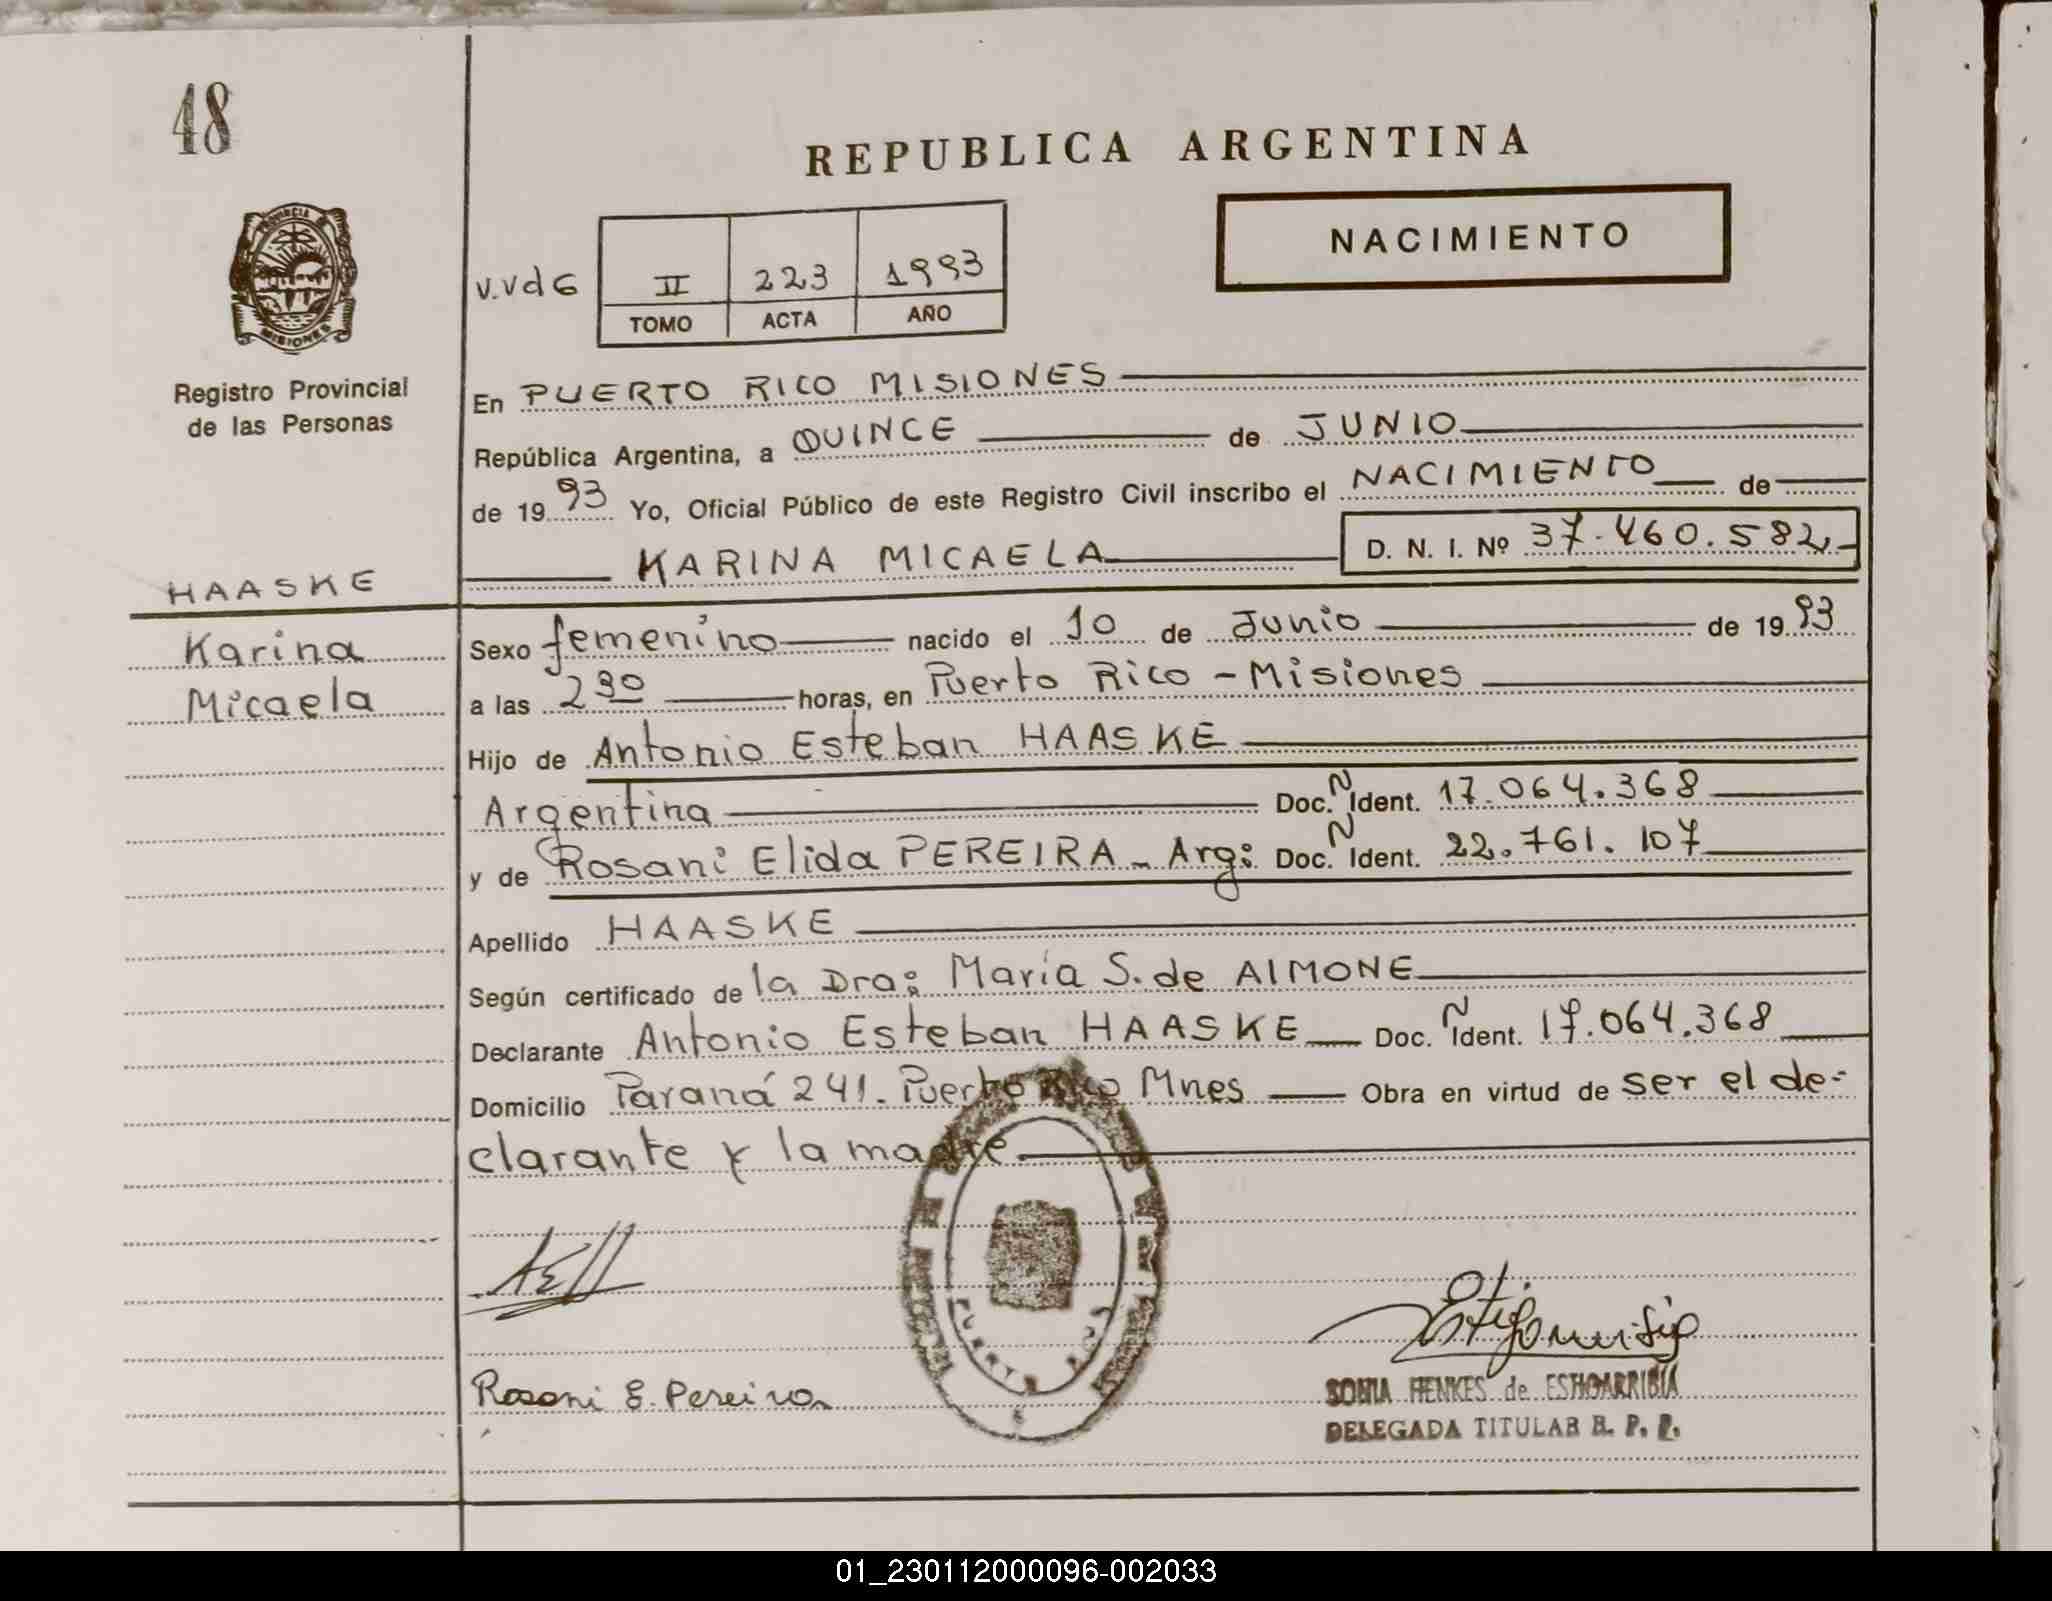 48
REPUBLICA ARGENTINA
NACIMIENTO
V.Vd6 II 223 1993
TOMO ACTA AÑO
PROVINCIA DE
MISIONES
Registro Provincial
de las Personas
En PUERTO RICO MISIONES
República Argentina, a QUINCE de JUNIO
de 1993 Yo, Oficial Público de este Registro Civil inscribo el NACIMIENTO de
KARINA MICAELA D. N. I. Nº 37.460.582
HAASKE
Karina
Micaela
Sexo femenino nacido el 10 de Junio de 1993
a las 2 30 horas, en Puerto Rico - Misiones
Hijo de Antonio Esteban HAASKE
Argentina Doc. N Ident. 17.064.368
y de Rosani Elida PEREIRA - Arg: Doc. N Ident. 22.761.107
Apellido HAASKE
Según certificado de la Dra: María S. de AIMONE
Declarante Antonio Esteban HAASKE Doc. N Ident. 17.064.368
Domicilio Paraná 241. Puerto Rico Mnes Obra en virtud de ser el de-
clarante y la madre
AEH
Rosani E. Pereira
SONIA HENKES de ESTIGARRIBIA
DELEGADA TITULAR R. P. P.
01_230112000096-002033